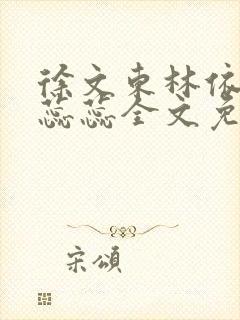 徐文东林依
蕊蕊全文免
宋颂